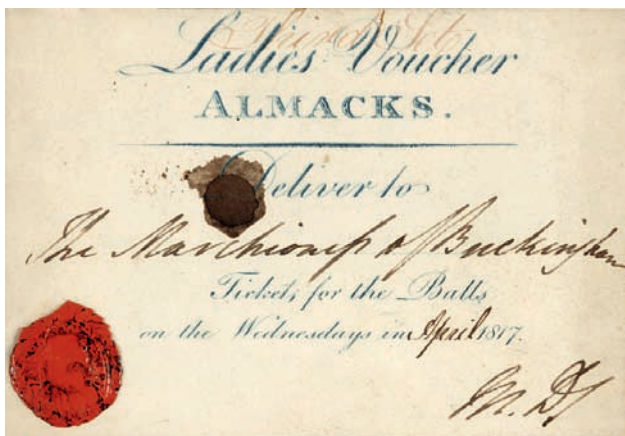 Ladies' Voucher
ALMACKS.
Deliver to
The Marchioness of Buckingham
Tickets for the Balls
on the Wednesdays in April 1817.